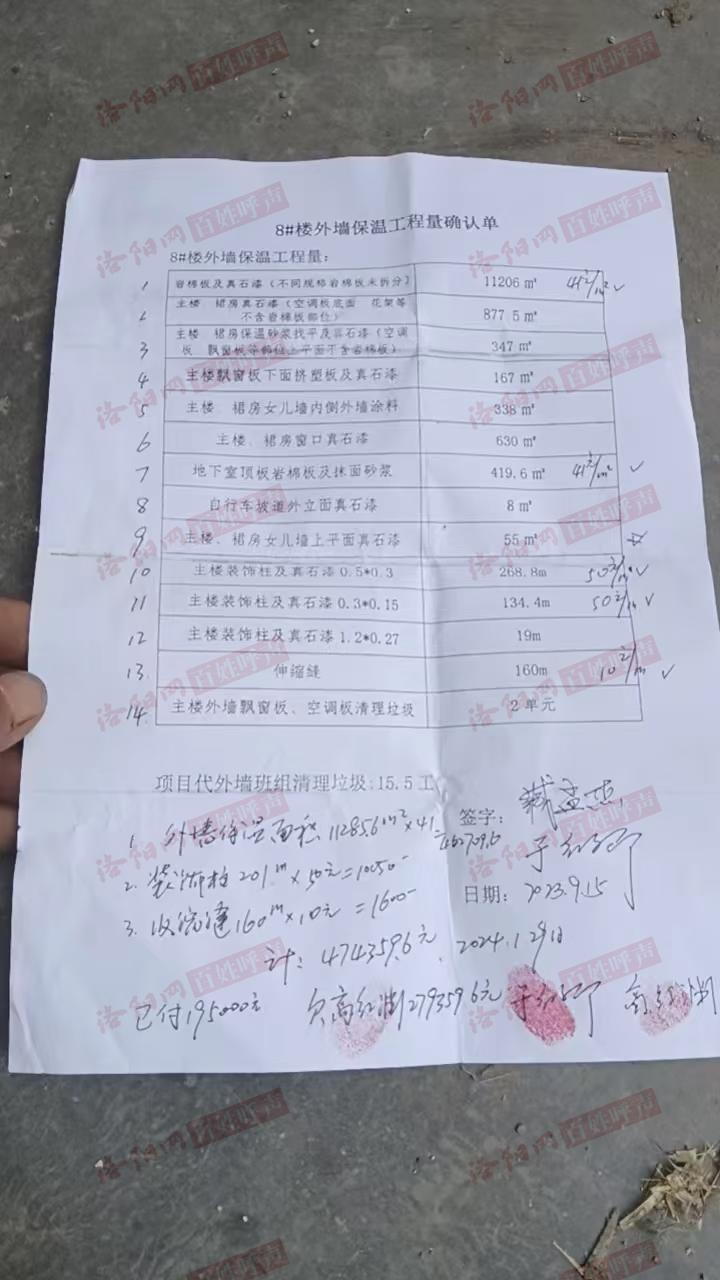 8#楼外墙保温工程量确认单
8#楼外墙保温工程量：
1 岩棉板及真石漆（不同规格岩棉板未拆分） 11206 ㎡ 41元/m² √
2 主楼 裙房真石漆（空调板底面 花架等
不含岩棉板部位） 877.5 ㎡
3 主楼 裙房保温砂浆找平及真石漆（空调
板 飘窗板等部位上平面不含岩棉板） 347 ㎡
4 主楼飘窗板下面挤塑板及真石漆 167 ㎡
5 主楼、裙房女儿墙内侧外墙涂料 338 ㎡
6 主楼、裙房窗口真石漆 630 ㎡
7 地下室顶板岩棉板及抹面砂浆 419.6 ㎡ 41元/m² √
8 自行车坡道外立面真石漆 8 ㎡
9 主楼、裙房女儿墙上平面真石漆 55 ㎡
10 主楼装饰柱及真石漆0.5*0.3 268.8m 50元/m √
11 主楼装饰柱及真石漆0.3*0.15 134.4m 50元/m √
12 主楼装饰柱及真石漆1.2*0.27 19m
13. 伸缩缝 160m 10元/m √
14. 主楼外墙飘窗板、空调板清理垃圾 2单元
项目代外墙班组清理垃圾:15.5工
签字：
1. 外墙保温面积11285.6m²×41=462709.6
2. 装饰柱201m×50元=10050-
日期： 2023.9.15
3. 160m×10元=1600-
计：474359.6元. 2024.1.29日
已付195000元 欠高红 279359.6元
洛阳网 百姓呼声